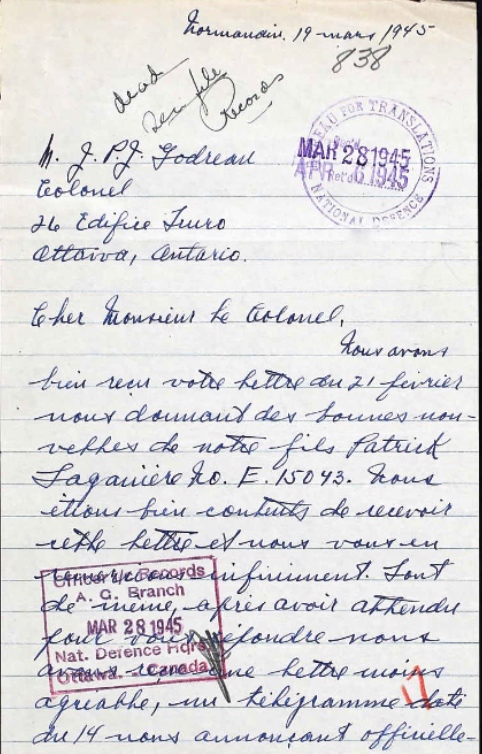 Normandin, 19 mars 1945
838
dead
Records
BUREAU FOR TRANSLATIONS
Rec'd
MAR 28 1945
APR 6 1945
Ret'd
NATIONAL DEFENCE
M. J. P. J. Godreau
Colonel
26 Edifice
Ottawa, Ontario.
Cher Monsieur le Colonel,
Nous avons
bien reçu votre lettre du 21 février
nous donnant des bonnes nou-
velles de notre fils Patrick
Laganière No. E. 15043. Nous
étions bien contents de recevoir
cette lettre et nous vous en
remercions infiniment. Tout
de même, après avoir attendu
pour vous répondre nous
avons reçu une lettre moins
agréable, un télégramme daté
du 14 nous annonçant officielle-
Officer i/c Records
A. G. Branch
MAR 28 1945
Nat. Defence Hdqrs
Ottawa. - Canada